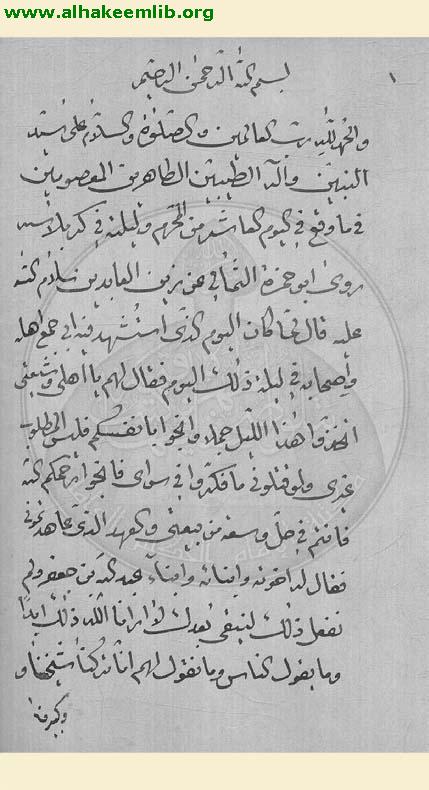 www.alhakeemlib.org
١
بسم الله الرحمن الرحيم
والحمد لله رب العالمين والصلوة والسلام على سيد
النبيين وآله الطيبين الطاهرين المعصومين
في ما وقع في اليوم العاشر من المحرم وليلته في كربلا
روى ابو حمزة الثمالي عن زين العابدين سلام الله
عليه قال لما كان اليوم الذي استشهد فيه ابي جمع اهله
واصحابه في ليلة ذلك اليوم فقال لهم يا اهلي وشيعتي
اتخذوا هذا الليل جملا وانجوا بانفسكم فليس المطلوب
غيري ولو قتلوني ما فكروا في سواي فانجوا يرحمكم الله
فانتم في حل وسعة من بيعتي والعهد الذي عاهدتموني
فقال له اخوته وابنائه وابناء عبد الله بن جعفر ولم
نفعل ذلك لنبقى بعدك لا ارانا الله ذلك ابدا
وما يقول الناس وما نقول لهم انا تركنا شيخنا و